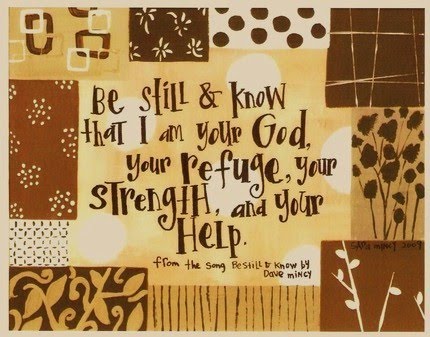 Be Still & Know
that I am your God,
your refuge, your
STRENGTH, and your
HELP.
from the song Be Still & Know by
Dave Mincy
SARA MINCY 2003